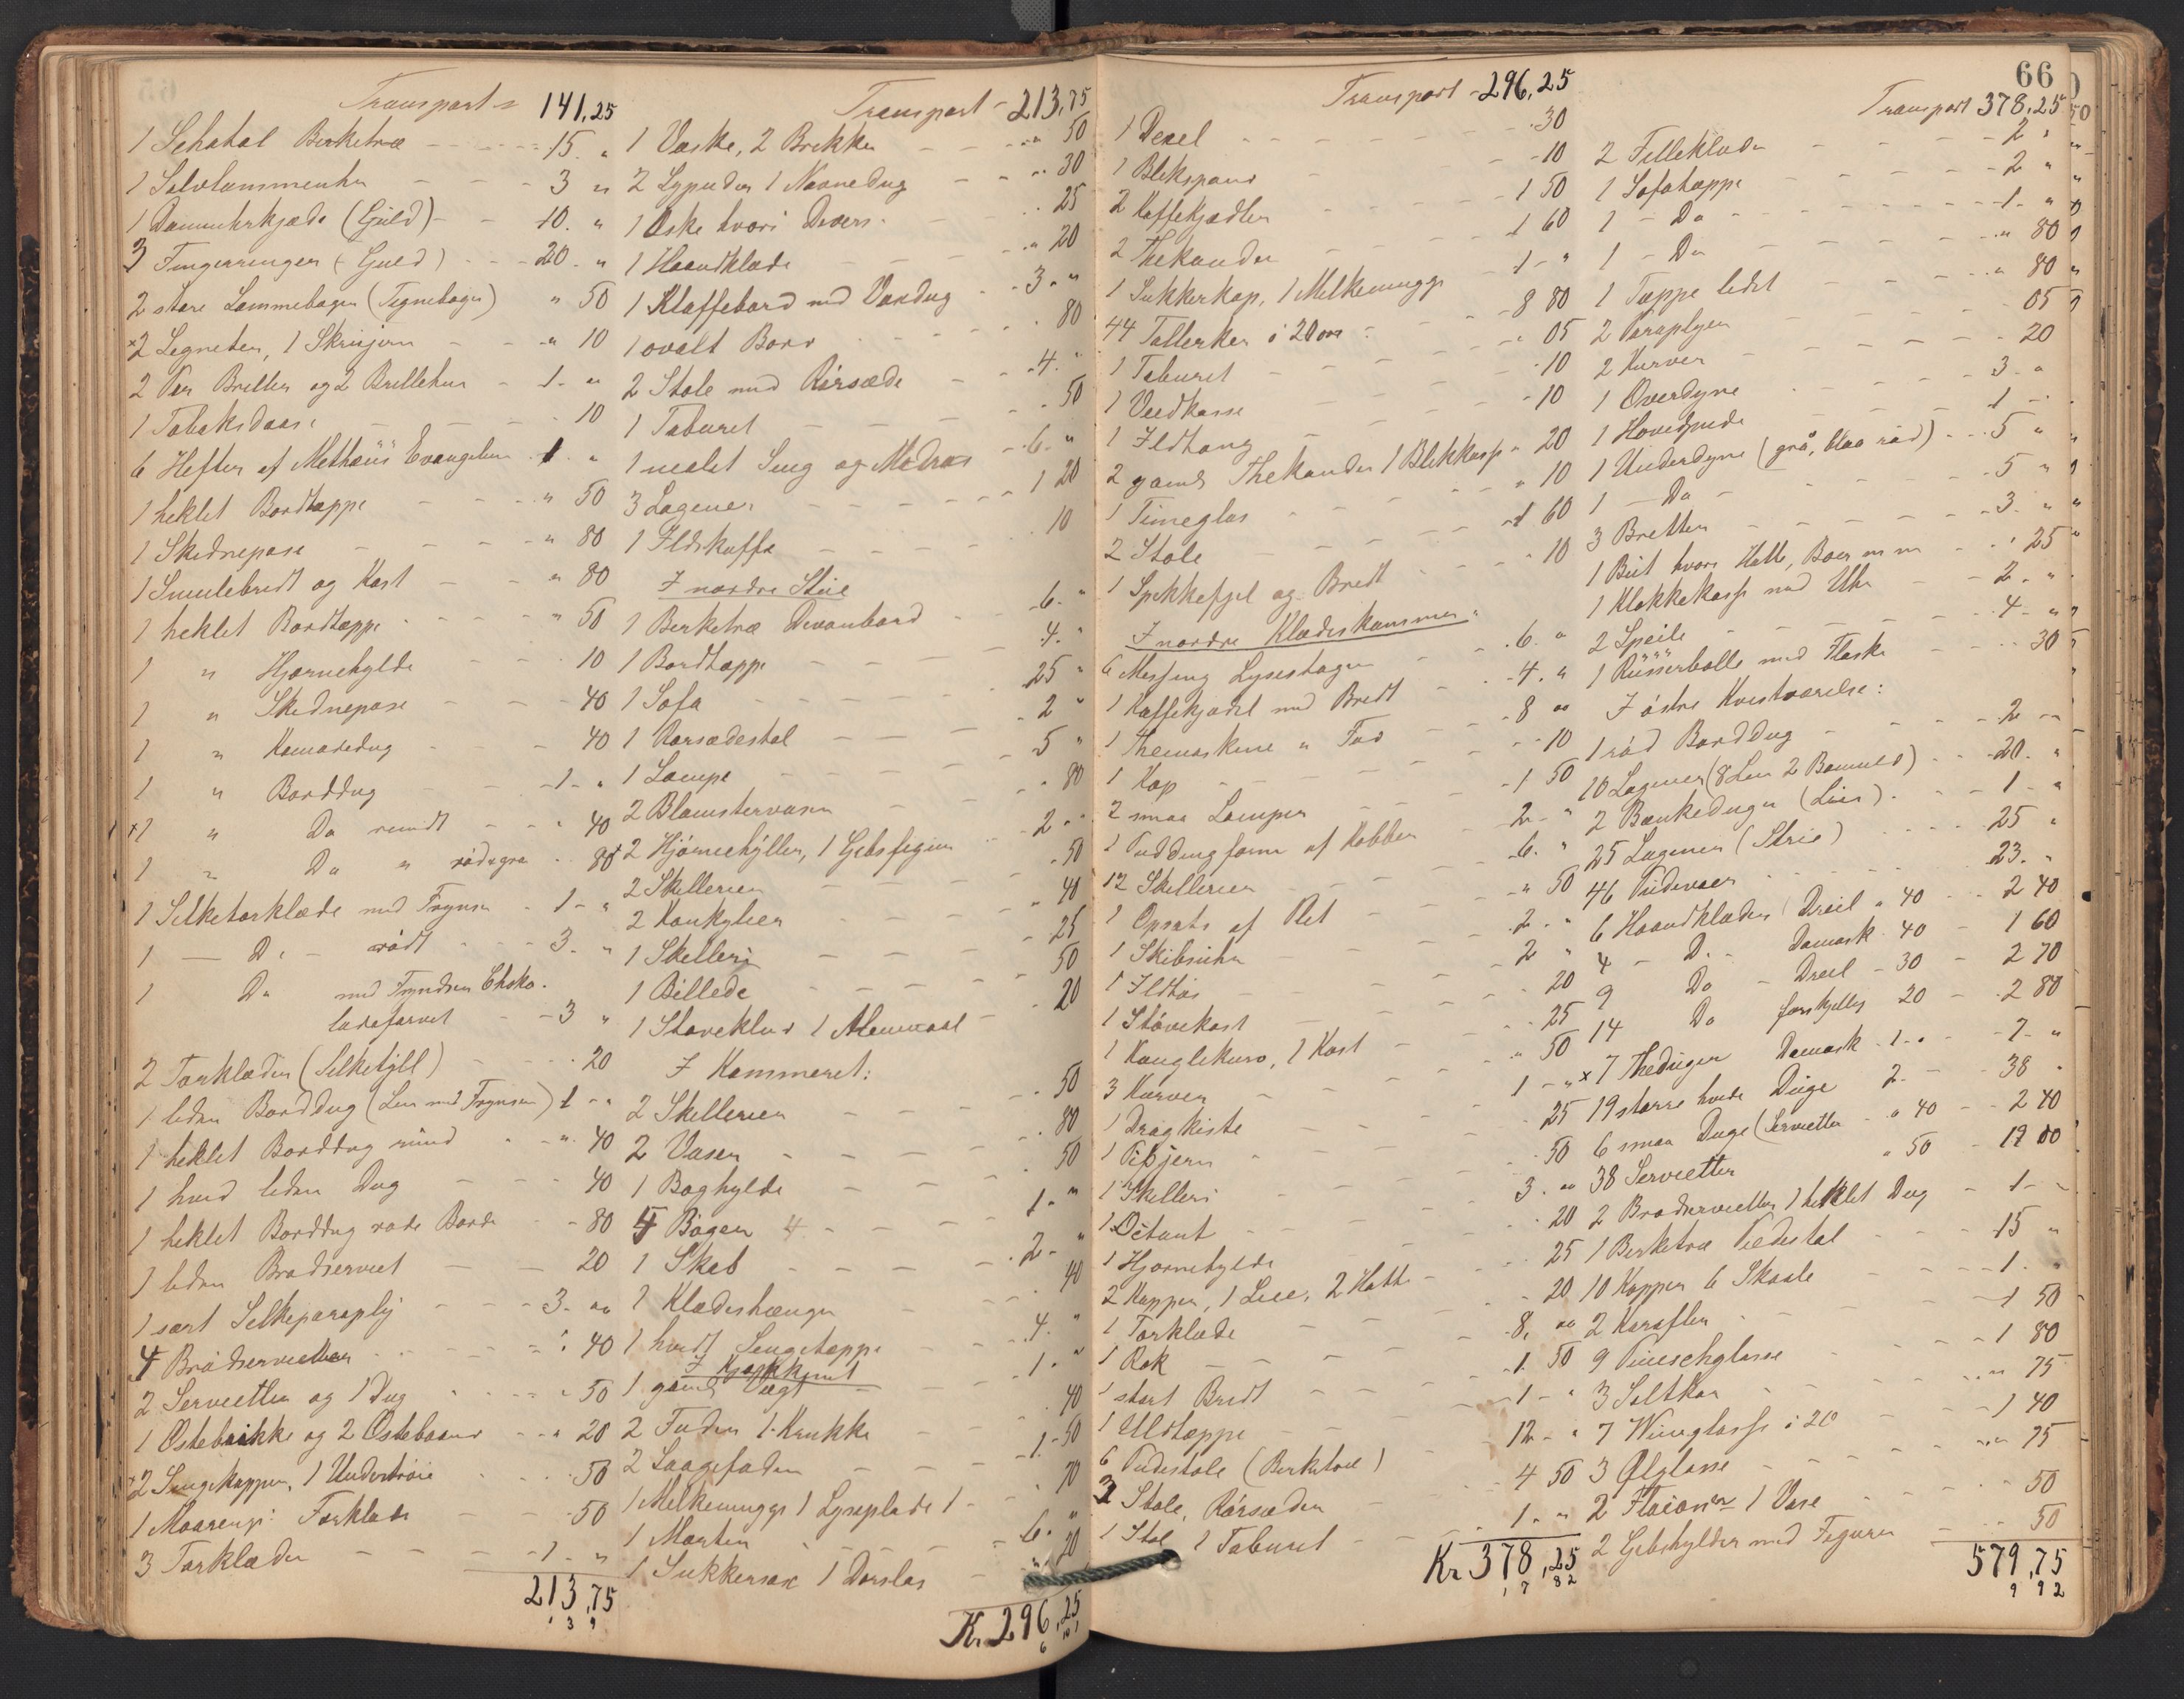 Transport = 141,25
1 Schatol Birketræ - - - - 15. "
1 Sølvlommeuhr - - - 3 "
1 Dameuhrkjæde (Guld) - - 10. "
3 Fingerringer (Guld) - - - 20. "
2 store Lommebøger (Tegnebøger) " 50
2 Signeter, 1 Skruejern - - " 10
2 Par Briller og 2 Brillehus - 1. "
1 Tobaksdaase - - - - 10
6 Hefter af Mathæus Evangelium 1. "
1 heklet Bordtæppe - - - " 50
1 Skednepose - - - - " 80
1 Smulebredt og Kost - - " 80
1 heklet Bordtæppe - - - " 50
1 " Hjørnehylde - - - 10
1 " Skednepose - - - 40
1 " Komodedug - - - 40
1 " Borddug - - - 1. "
1 " Do rundt - - " 40
1 " Do " rød & grå - 80
1 Silketørklæde med Frynser - 1. "
1 — Do - rødt - - - 3. "
1 Do med Fryndser Choko-
ladefarvet - - 3 "
2 Tørklæder (Silketyll) - - - 20
1 liden Borddug (Lin med Frynser) 1 - "
1 heklet Borddug rund - - " 40
1 hvid liden Dug - - - 40
1 heklet Borddug røde Borde - - 80
1 liden Brødserviet - - 20
1 sort Silkeparaply - - - 3. "
4 Brødservietter - - - - " 40
2 Servietter og 1 Dug - - - " 50
1 Ostebrikke og 2 Ostebaand - - " 20
2 Sengekapper, 1 Undertrøie - - - 50
1 Forklæde - - - 50
3 Tørklæder - - - - 1 - "
213,75
Transport - 213,75
1 Vaske, 2 Brikker - - - " 50
2 Lyspuder 1 Navnedug - - " 30
1 Æske hvori Divers. - - - 25
1 Haandklæde - - - - " 20
1 Klaffebord med Voxdug - - 3. "
1 ovalt Bord - - - - 80
2 Stole med Rørsæde - - 4. "
1 Taburet - - - - 50
1 malet Seng og Madras - 6. "
3 Lagener - - - - 1 20
1 Ildskuffe - - - - 10
I nordre Stue
1 Birketræ Divanbord - 6. "
1 Bordtæppe - - - - 4. "
1 Sofa - - - - 25 "
1 Rørsædestol - - - 2 "
1 Lampe - - - - 5 "
2 Blomstervaser - - - " 80
2 Hjørnehyller, 1 Gibsfigur - - 2. "
2 Skillerier - - - - 50
2 Konkylier - - - - 40
1 Skilleri - - - - 25
1 Billede - - - - 50
1 Støveklud 1 Alenmaal - 20
I Kammeret:
2 Skillerier - - - 50
2 Vaser - - - - 80
1 Boghylde - - - - 50
4 Bøger 4 - - - - 1. "
1 Skab - - - - 2. "
1 Klædeshænger - - - 40
1 hvidt Sengetæppe - - 4. "
I Kjøkkenet
1 gaml Vægt - - - 1. "
2 Fader 1 Krukke - - - 40
2 Laagefader - - - 1. 50
1 Melkemugge 1 Lyseplade 1 - - 70
1 Morter - - - - 6. "
1 Sukkersax 1 Dørslag - - " 20
Kr. 296,25
Transport - 296,25
1 Dexel - - - - 30
1 Blikspand - - - - 10
2 Kaffekjedler - - - 1 50
2 Thekander - - - 1 60
1 Sukkerkop, 1 Melkemugge 1 - "
44 Tallerker á 20 øre - - 8 80
1 Taburet - - - - " 05
1 Vedkasse - - - - 10
1 Ildtang - - - - 10
2 gamle Thekander 1 Blikkasse " 20
1 Timeglas - - - " 10
2 Stole - - - - 1 60
1 Spekkefjel og Bredt - - " 10
I nordre Klædeskammer.
6 Messing Lysestager - - 6. "
1 Kaffekjedel med Bredt - - 4. "
1 Themaskine " Fad - - 8 "
1 Kop - - - - 10
2 smaa Lamper - - - 1 50
1 Puddingform af Kobber - 2. "
12 Skillerier - - - - 6. "
1 Opsats af Plet - - - " 50
1 Skibsuhr - - - - 2. "
1 Ildtøi - - - - 2 "
1 Støvekost - - - - 20
1 Konglekurv, 1 Kost - - " 25
3 Kurver - - - - " 50
1 Dragkiste - - - - 1 - "
1 Pibjern - - - - 25
1 Skilleri - - - - 50
1 Octant - - - - 3. "
1 Hjørnehylde - - - - 20
2 Kapper, 1 Lue, 2 Hatte - - 25
1 Tørklæde - - - - 20
1 Rok - - - - 8. "
1 stort Bredt - - - - 1. 50
1 Uldtæppe - - - - 1 - "
6 Pudestole (Birketræ) - 12. "
3 Stole, Rørsæder - - 4 50
1 Stol 1 Taburet - - - 1. "
Kr 378,25
66
Transport 378,25
2 Filleklæder - - - - 2 "
1 Sofatæppe - - - - 2 "
1 - Do - - - - 1. "
1 - Do - - - - " 80
1 Tæppe lidet - - - " 80
2 Paraplyer - - - - 05
2 Kurver - - - - 20
1 Overdyne - - - - 3. "
1 Hovedpude - - - - 1 - "
1 Underdyne (grå, blaa rød) - - 5 "
1 - Do - - - - - 5 "
3 Bretter - - - - 3. "
1 Bøt hvori Hatte, Boer m m - - " 25
1 Klokkekasse med Uhr - - 2. "
2 Speile - - - - 4 - "
1 Russerbolle med Flaske - - - 30
I østre Kvistværelse:
1 rød Borddug - - - - 2 - "
10 Lagener (8 Lin 2 Bomuld) - - 20. "
2 Bænkeduger (Lin). - - - 1 - "
25 Lagener (Strie) - - - 25 "
46 Pudevaer - - - - 23. "
6 Haandklæder Dreil " 40 - - 2 40
4 - Do - Damask - 40 - 1 60
9 Do - Dreil - 30 - 2 70
14 Do forskjellig 20 - 2 80
7 Theduger Damask - 1. " - 7. "
19 større hvide Duge 2. - 38 "
6 smaa Duge (Servietter - " 40 - - 2 40
38 Servietter " 50 - 19 00
2 Brødservietter, 1 heklet Dug - 1 - "
1 Birketræ Piedestal - - 15 "
10 Kopper 6 Skaale - - - 1. "
2 Karafler - - - - 1 50
9 Puncheglasse - - - 1 80
3 Saltkar - - - - " 75
7 Viinglasse á 20 - - - 1 40
3 Ølglasse - - - - " 75
2 Flacon'er 1 Vase - - - 50
2 Gibshylder med Figurer - - - 50
579,75